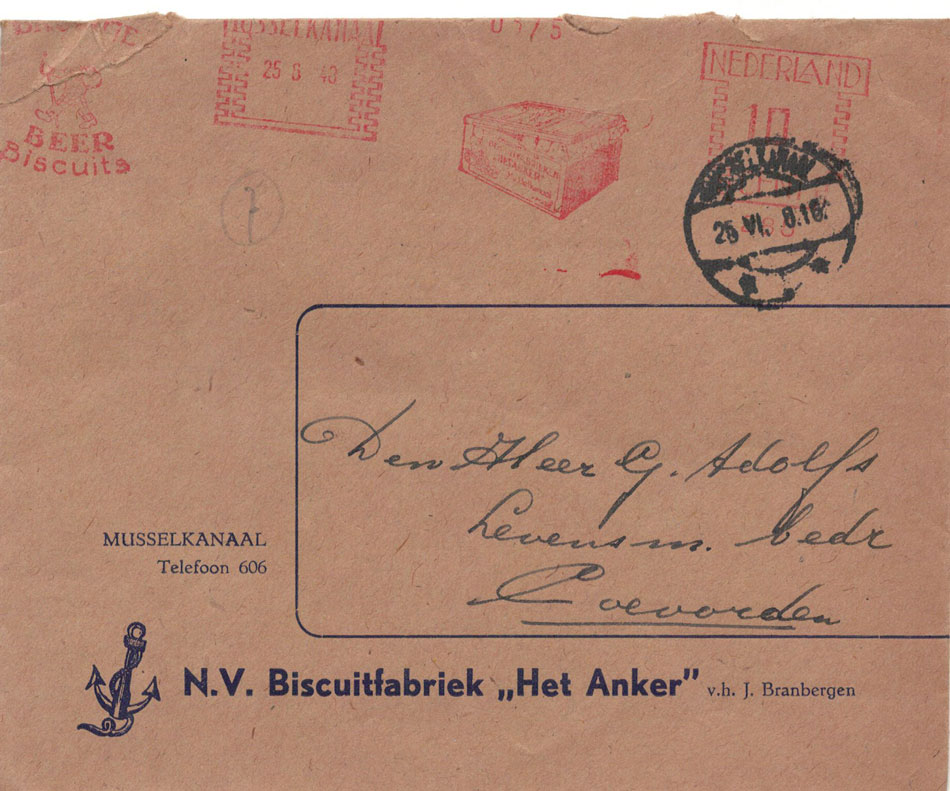 BRUINE
BEER
Biscuits
MUSSELKANAAL
25 6 48
0375
NEDERLAND
10
CENT
26 VI. 8.16
7
Den Heer G. Adolfs
Levensm. bedr
Coevorden
MUSSELKANAAL
Telefoon 606
N.V. Biscuitfabriek „Het Anker” v.h. J. Branbergen